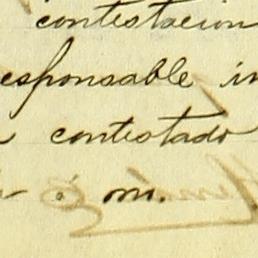 contestacion
esponsable in
contestado
ó m.